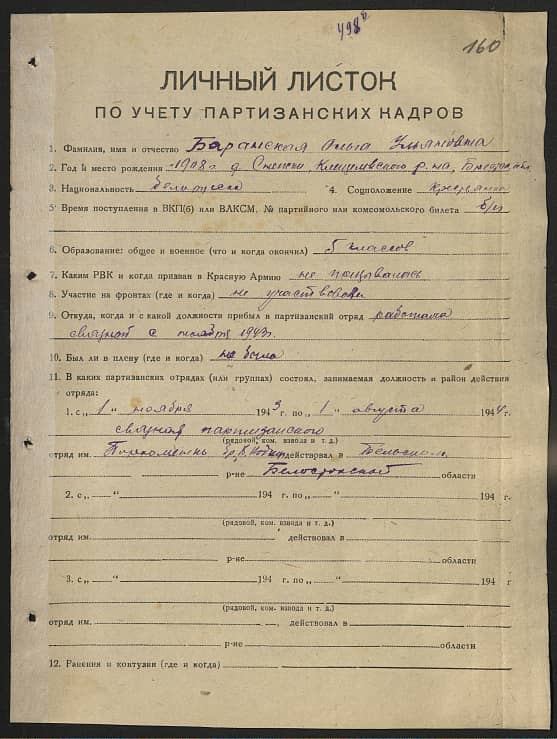 498
160
ЛИЧНЫЙ ЛИСТОК
ПО УЧЕТУ ПАРТИЗАНСКИХ КАДРОВ
1. Фамилия, имя и отчество Баранская Ольга Ульяновна
2. Год и место рождения 1908 г. д. Клещелевского р-на, Белост. обл.
3. Национальность белоруска 4. Соцположение крестьянка
5. Время поступления в ВКП(б) или ВЛКСМ, № партийного или комсомольского билета б/п
6. Образование: общее и военное (что и когда окончил) 5 классов
7. Каким РВК и когда призван в Красную Армию не призывалась
8. Участие на фронтах (где и когда) не участвовала
9. Откуда, когда и с какой должности прибыл в партизанский отряд работала
связной с ноября 1943г.
10. Был ли в плену (где и когда) не была
11. В каких партизанских отрядах (или группах) состоял, занимаемая должность и район действия
отряда:
1. с „ 1 " ноября 1943 г. по „ 1 " августа 1944 г.
связная партизанского
(рядовой, ком. взвода и т. д.)
отряд им. действовал в Бельском
р-не Белостокской области
2. с „ " 194 г. по „ " 194
(рядовой, ком. взвода и т. д.)
отряд им. действовал в
р-не области
3. с „ " 194 г. по „ " 194 г
(рядовой, ком. взвода и т. д.)
отряд им. действовал в
р-не области
12. Ранения и контузии (где и когда)